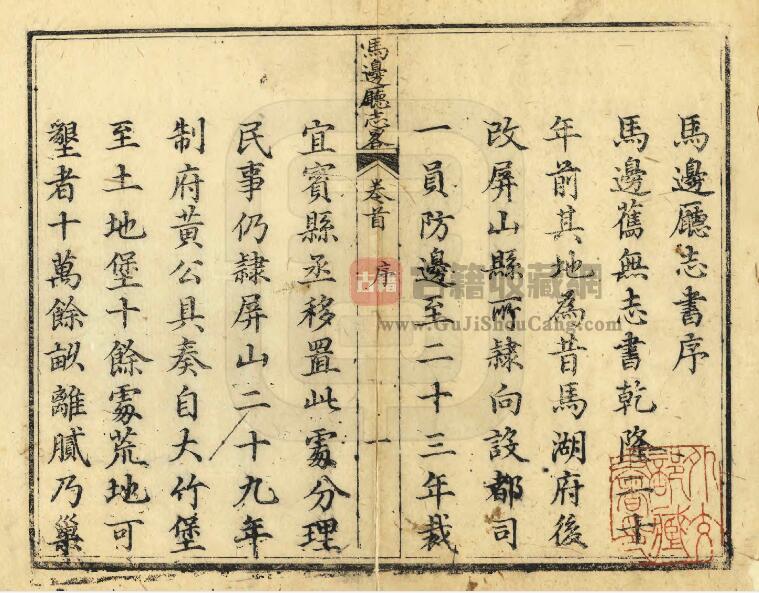 馬邊廳志書序
馬邊舊無志書乾隆二十
年前其地為昔馬湖府後
改屏山縣所隸向設都司
一員防邊至二十三年裁
馬邊廳志畧
卷首
序
一
宜賓縣丞移置此處分理
民事仍隸屏山二十九年
制府黃公具奏自大竹堡
至土地堡十餘處荒地可
墾者十萬餘畝離膩乃巢
古籍
古籍收藏網
www.GuJiShouCang.com